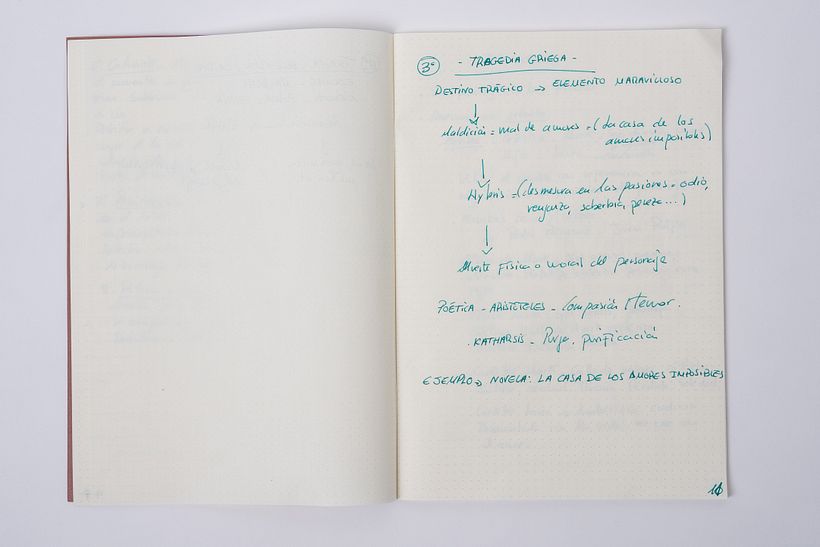 3º - TRAGEDIA GRIEGA -
DESTINO TRÁGICO → ELEMENTO MARAVILLOSO
↓
Maldición = mal de amores = (La casa de los
amores imposibles)
↓
Hybris = (desmesura en las pasiones = odio,
venganza, soberbia, pereza...)
↓
Muerte Física o moral del personaje
POÉTICA - ARISTÓTELES - Compasión / temor.
. KATHARSIS - Purga, purificación
EJEMPLO → NOVELA: LA CASA DE LOS AMORES IMPOSIBLES